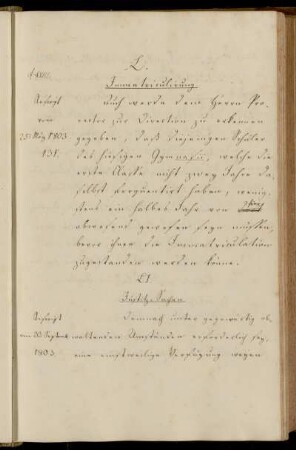 L.
Immatriculirung
Rescript
vom
25t May 1803
131.
Auch werde dem Herrn Pro-
rector zur Direction zu erkennen
gegeben, daß diejenigen Schüler
des hiesigen Gymnasii, welche die
erste Classe nicht zwey Jahre da-
selbst frequentirt haben, wenig-
stens ein halbes Jahr von
abwesend gewesen seyn müssen,
bevor ihnen die Immatriculation
zugestanden werden könne.
LI.
Rescript
vom 30 Septemb
1803
Demnach unter gegenwärtig ob-
waltenden Umständen erforderlich sey,
eine einstweilige Verfügung wegen